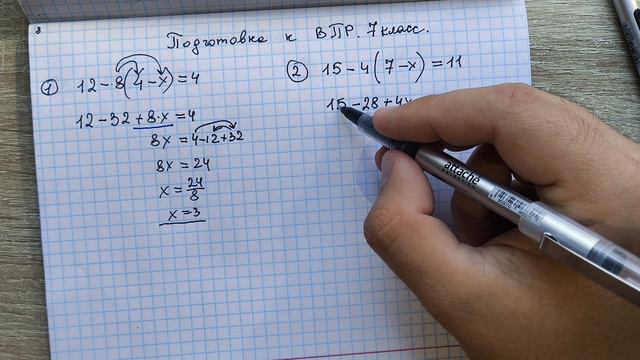 Подготовка к ВПР. 7 класс.
① 12 - 8(4 - x) = 4
12 - 32 + 8·x = 4
8x = 4 - 12 + 32
8x = 24
x = 24/8
x = 3
② 15 - 4(7 - x) = 11
15 - 28 + 4x
attache